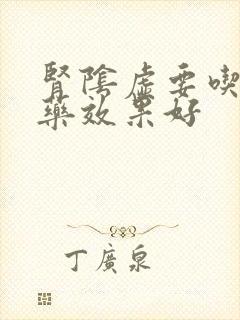 腎陰虛要喫
藥效果好
丁廣泉